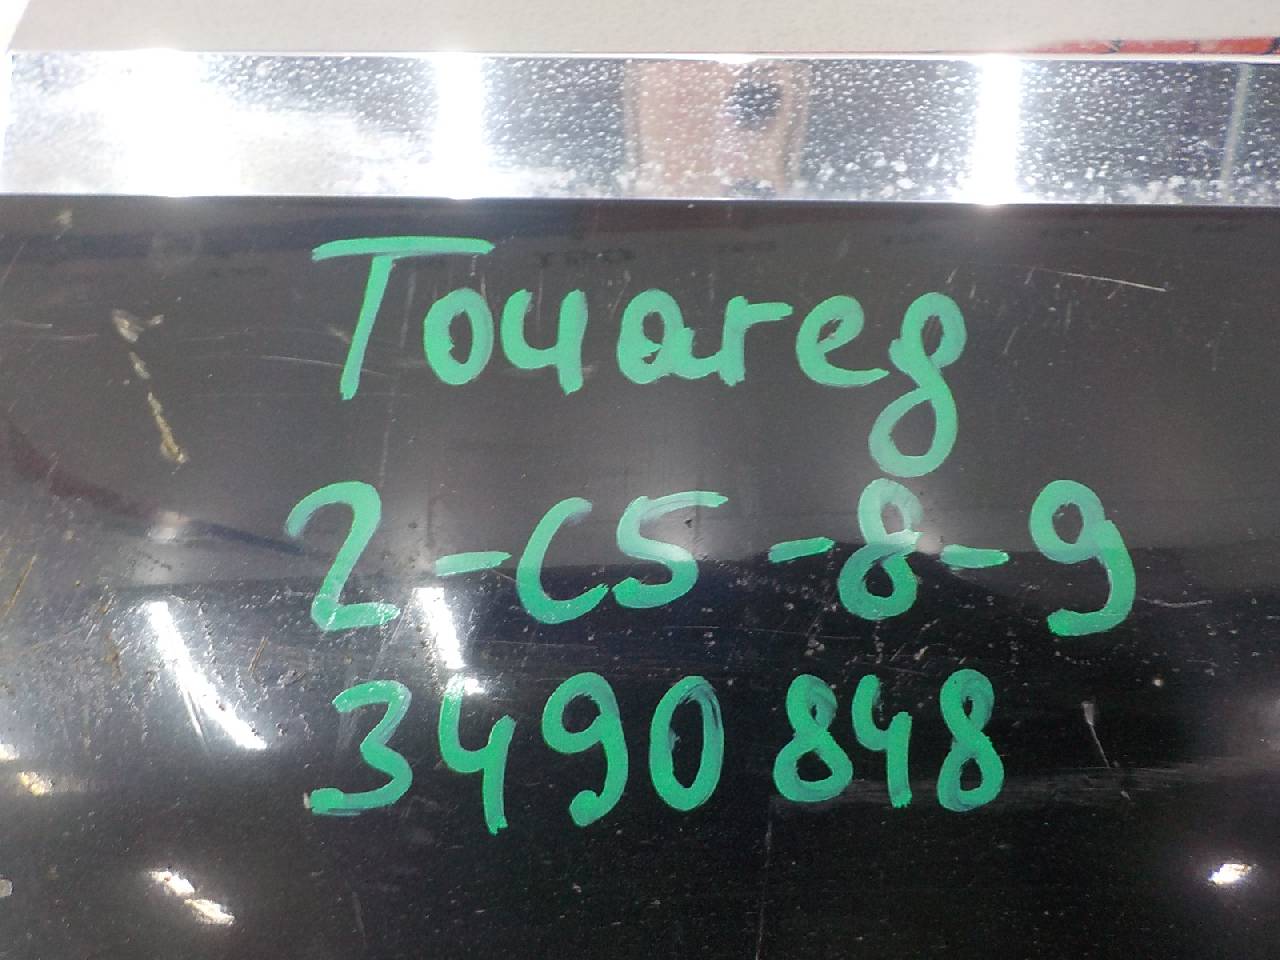 Touareg
2-C5-8-9
3490848